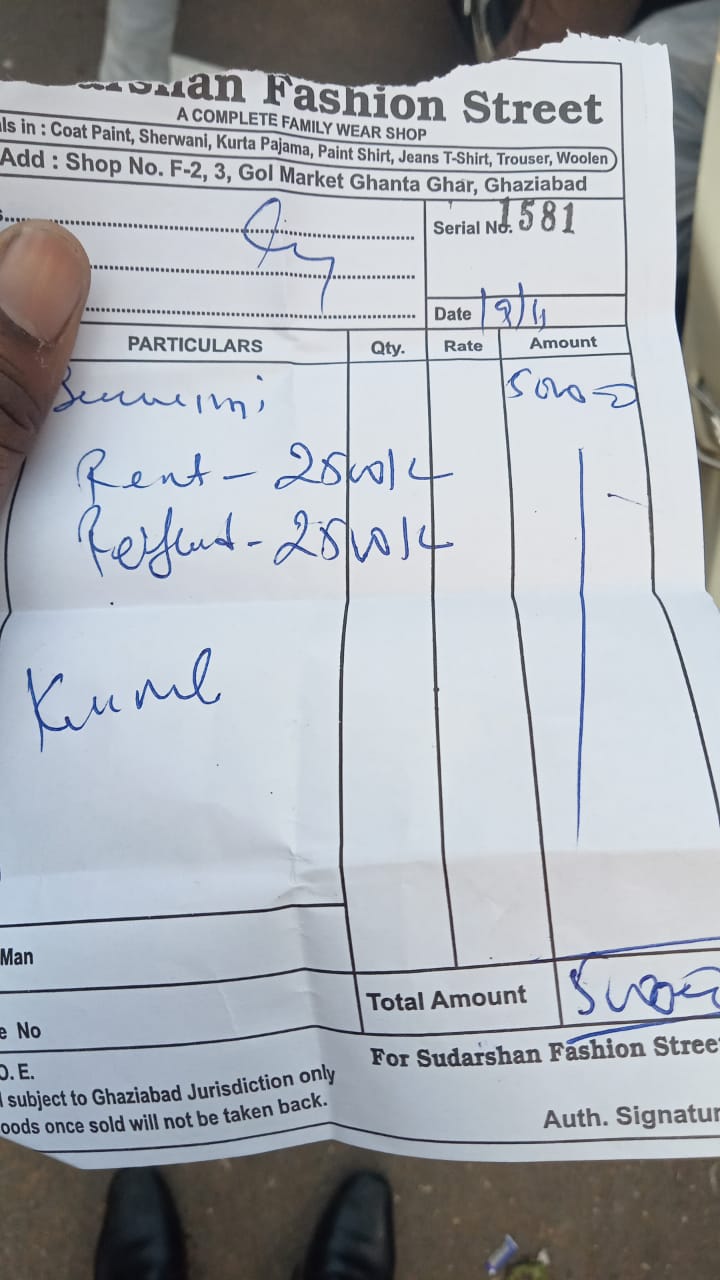 Fashion Street
A COMPLETE FAMILY WEAR SHOP
ls in : Coat Paint, Sherwani, Kurta Pajama, Paint Shirt, Jeans T-Shirt, Trouser, Woolen
Add : Shop No. F-2, 3, Gol Market Ghanta Ghar, Ghaziabad
Serial No. 1581
Date
PARTICULARS Qty. Rate Amount
5000
Rent - 2500/-
Refund - 2500/-
Man
Total Amount 5000
e No
O. E.
For Sudarshan Fashion Stree
l subject to Ghaziabad Jurisdiction only
oods once sold will not be taken back.
Auth. Signatur